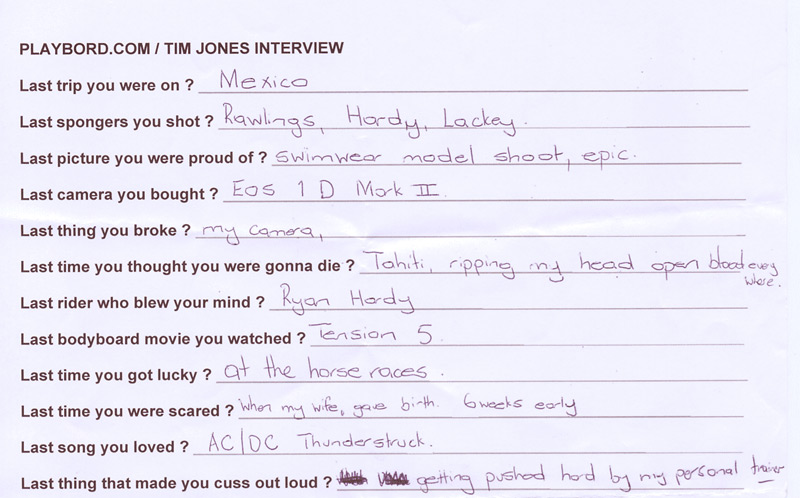 PLAYBORD.COM / TIM JONES INTERVIEW
Last trip you were on ? Mexico
Last spongers you shot ? Rawlings, Hardy, Lackey.
Last picture you were proud of ? swimwear model shoot, epic.
Last camera you bought ? EOS 1 D Mark II.
Last thing you broke ? my camera,
Last time you thought you were gonna die ? Tahiti, ripping my head open blood every where.
Last rider who blew your mind ? Ryan Hardy
Last bodyboard movie you watched ? Tension 5.
Last time you got lucky ? at the horse races.
Last time you were scared ? When my wife, gave birth. 6 weeks early
Last song you loved ? AC/DC Thunderstruck.
Last thing that made you cuss out loud ? getting pushed hard by my personal trainer